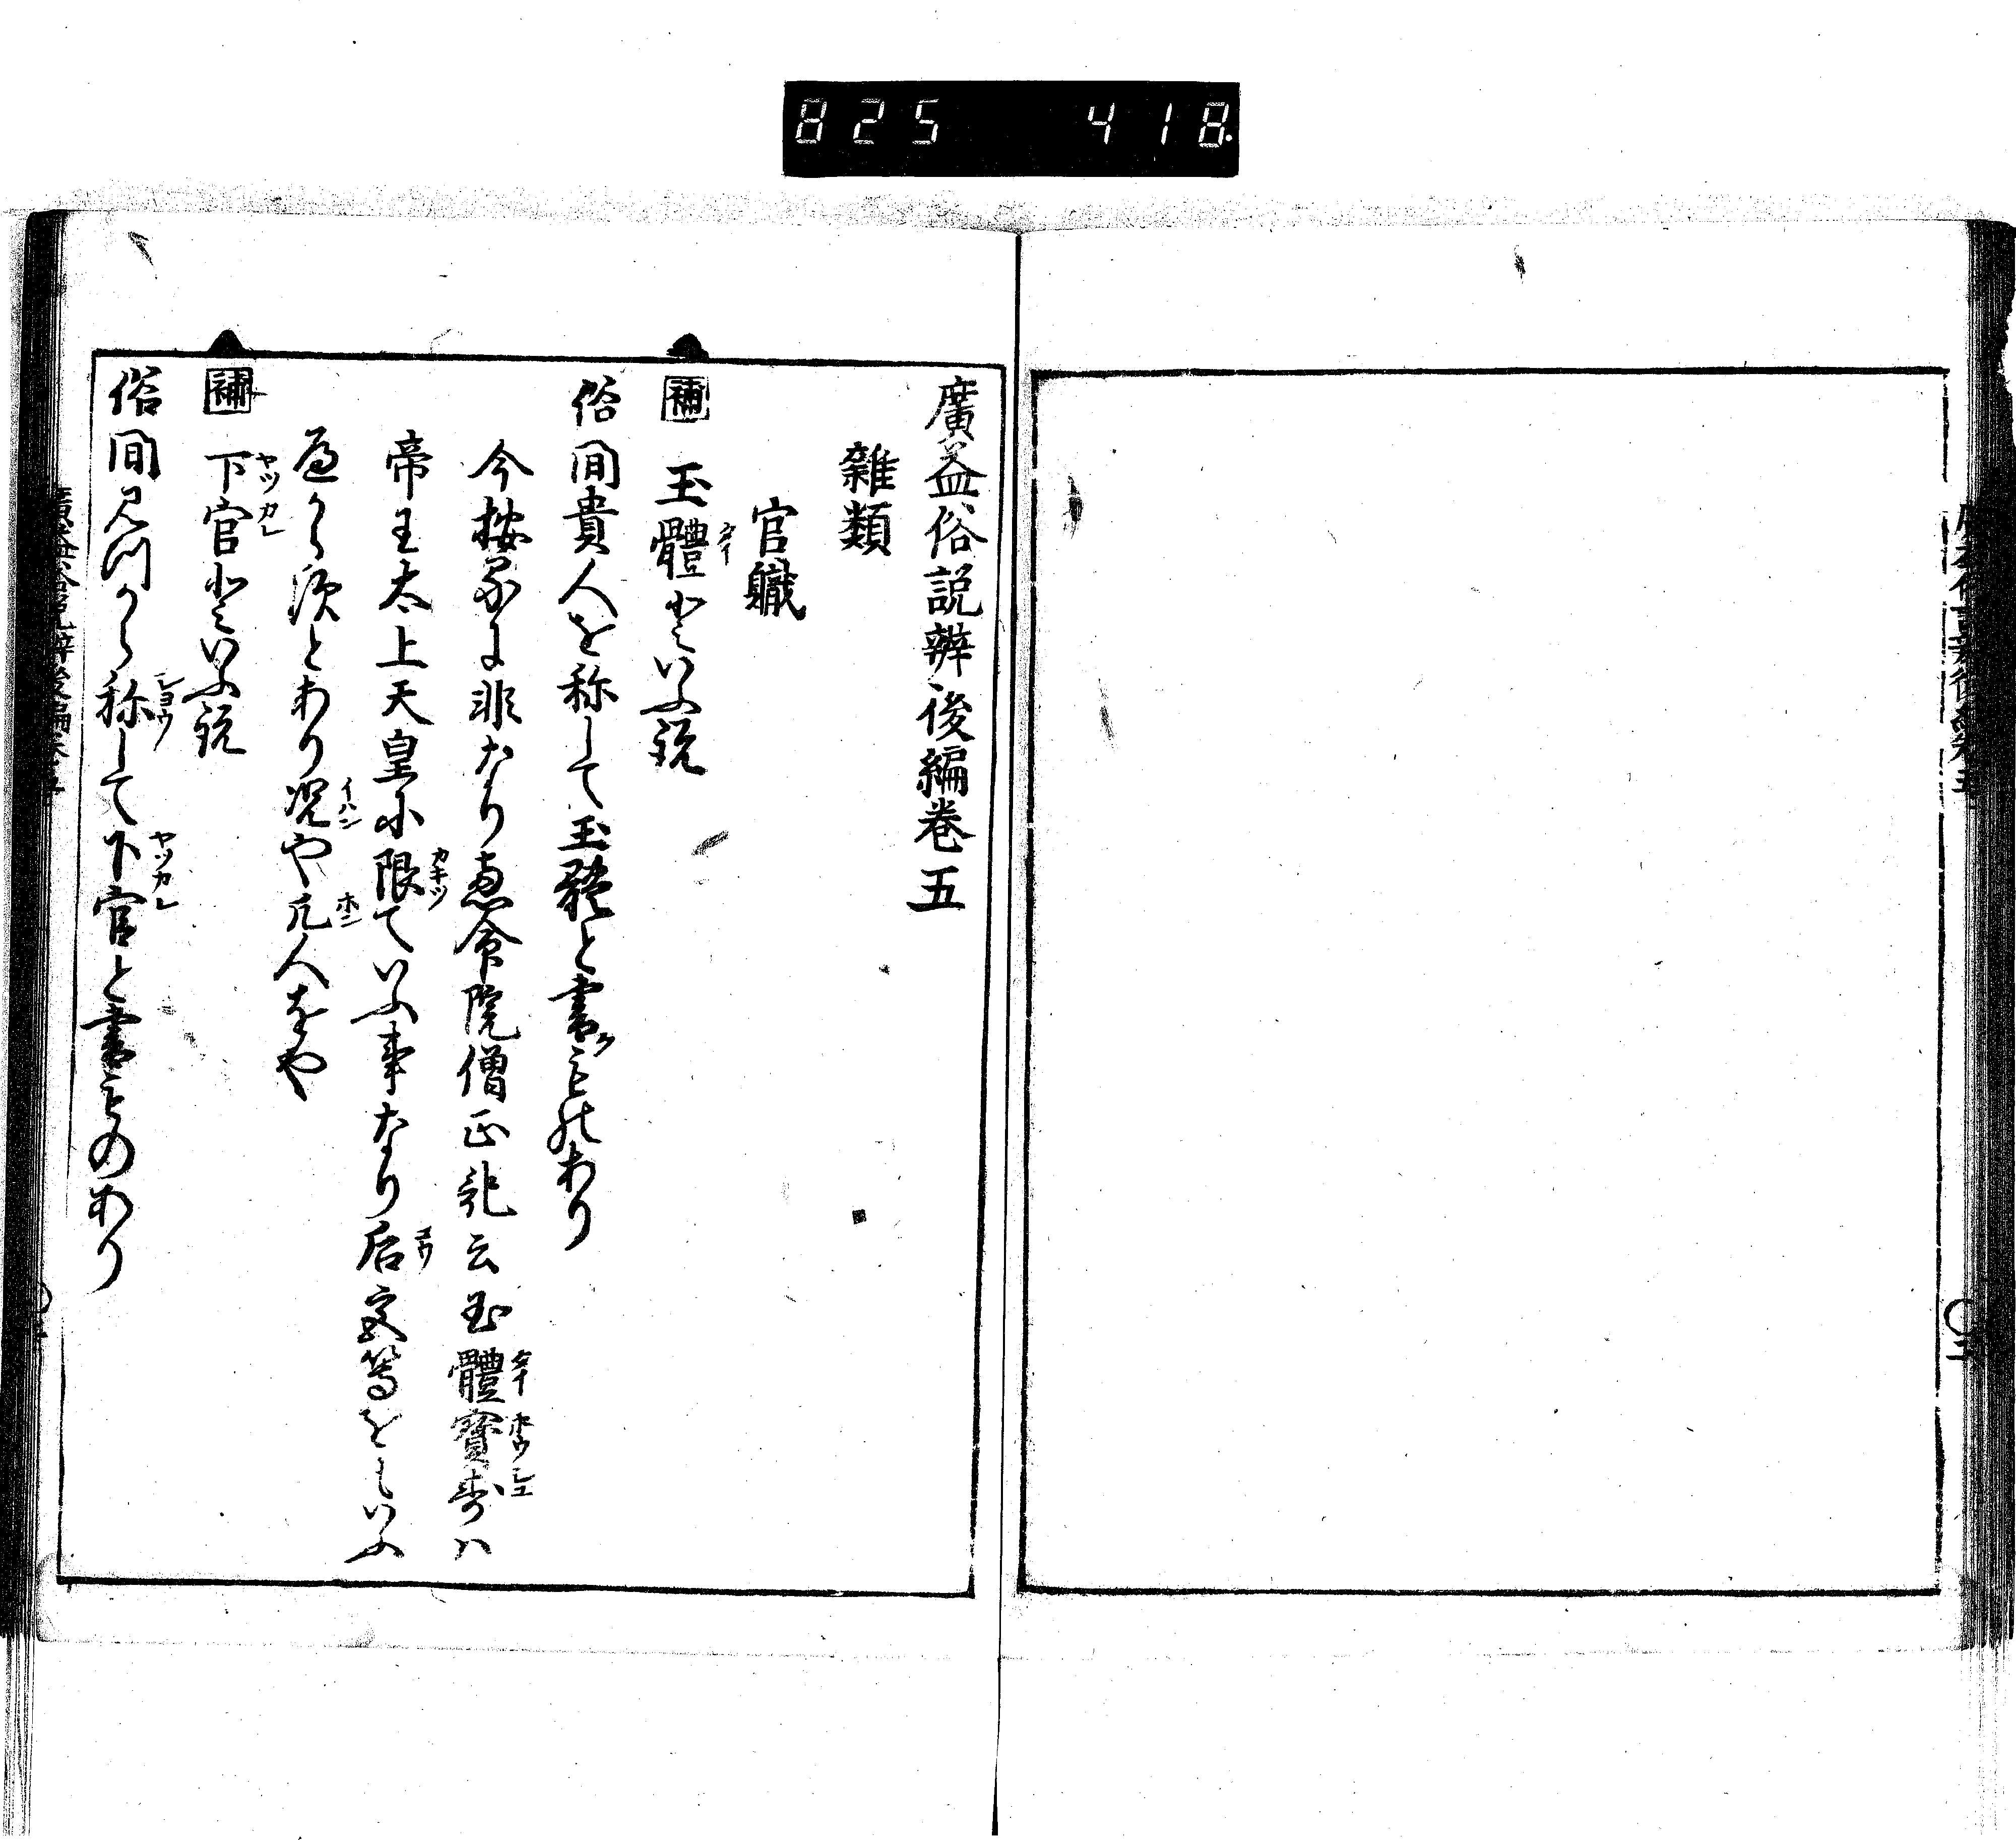 825 418
廣益俗説辨後編巻五
雜類
官職
補 玉體といふ説
俗間貴人を称して玉體と書ものあり
今按るに非なり 院僧正記云玉體寶寿ハ
帝王太上天皇に限ていふ事なり后宮等をもいふ
べからずとあり况や凡人をや
補 下官といふ説
俗間みづから称して下官と書ものあり